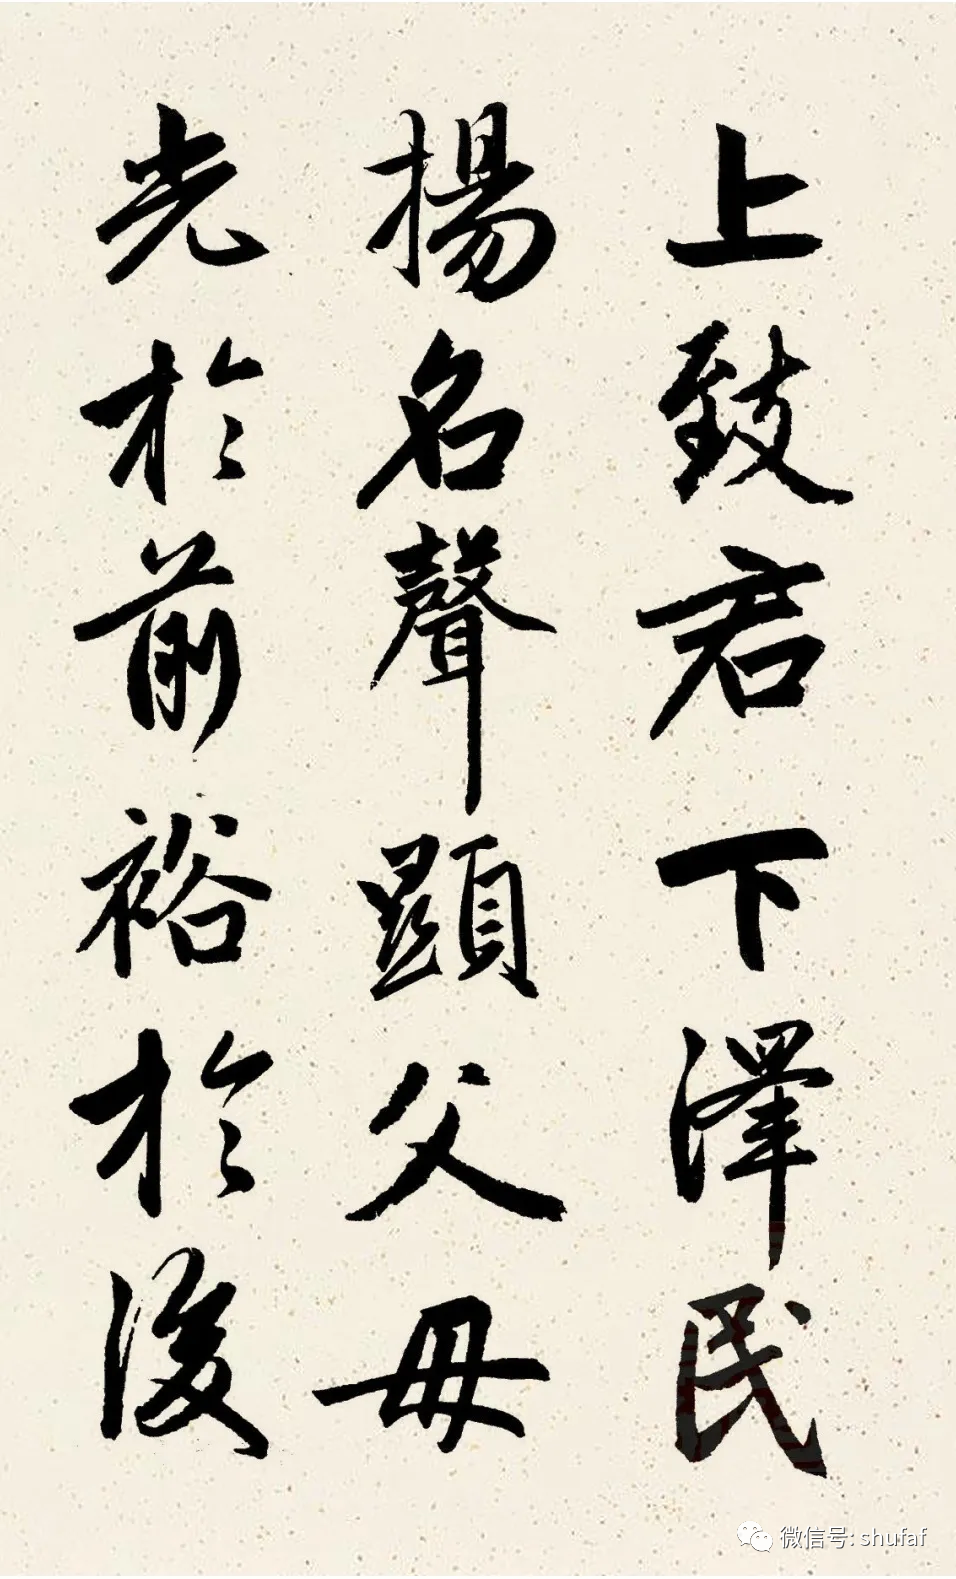 上致君下澤民
揚名聲顯父母
光於前裕於後
微信号: shufaf